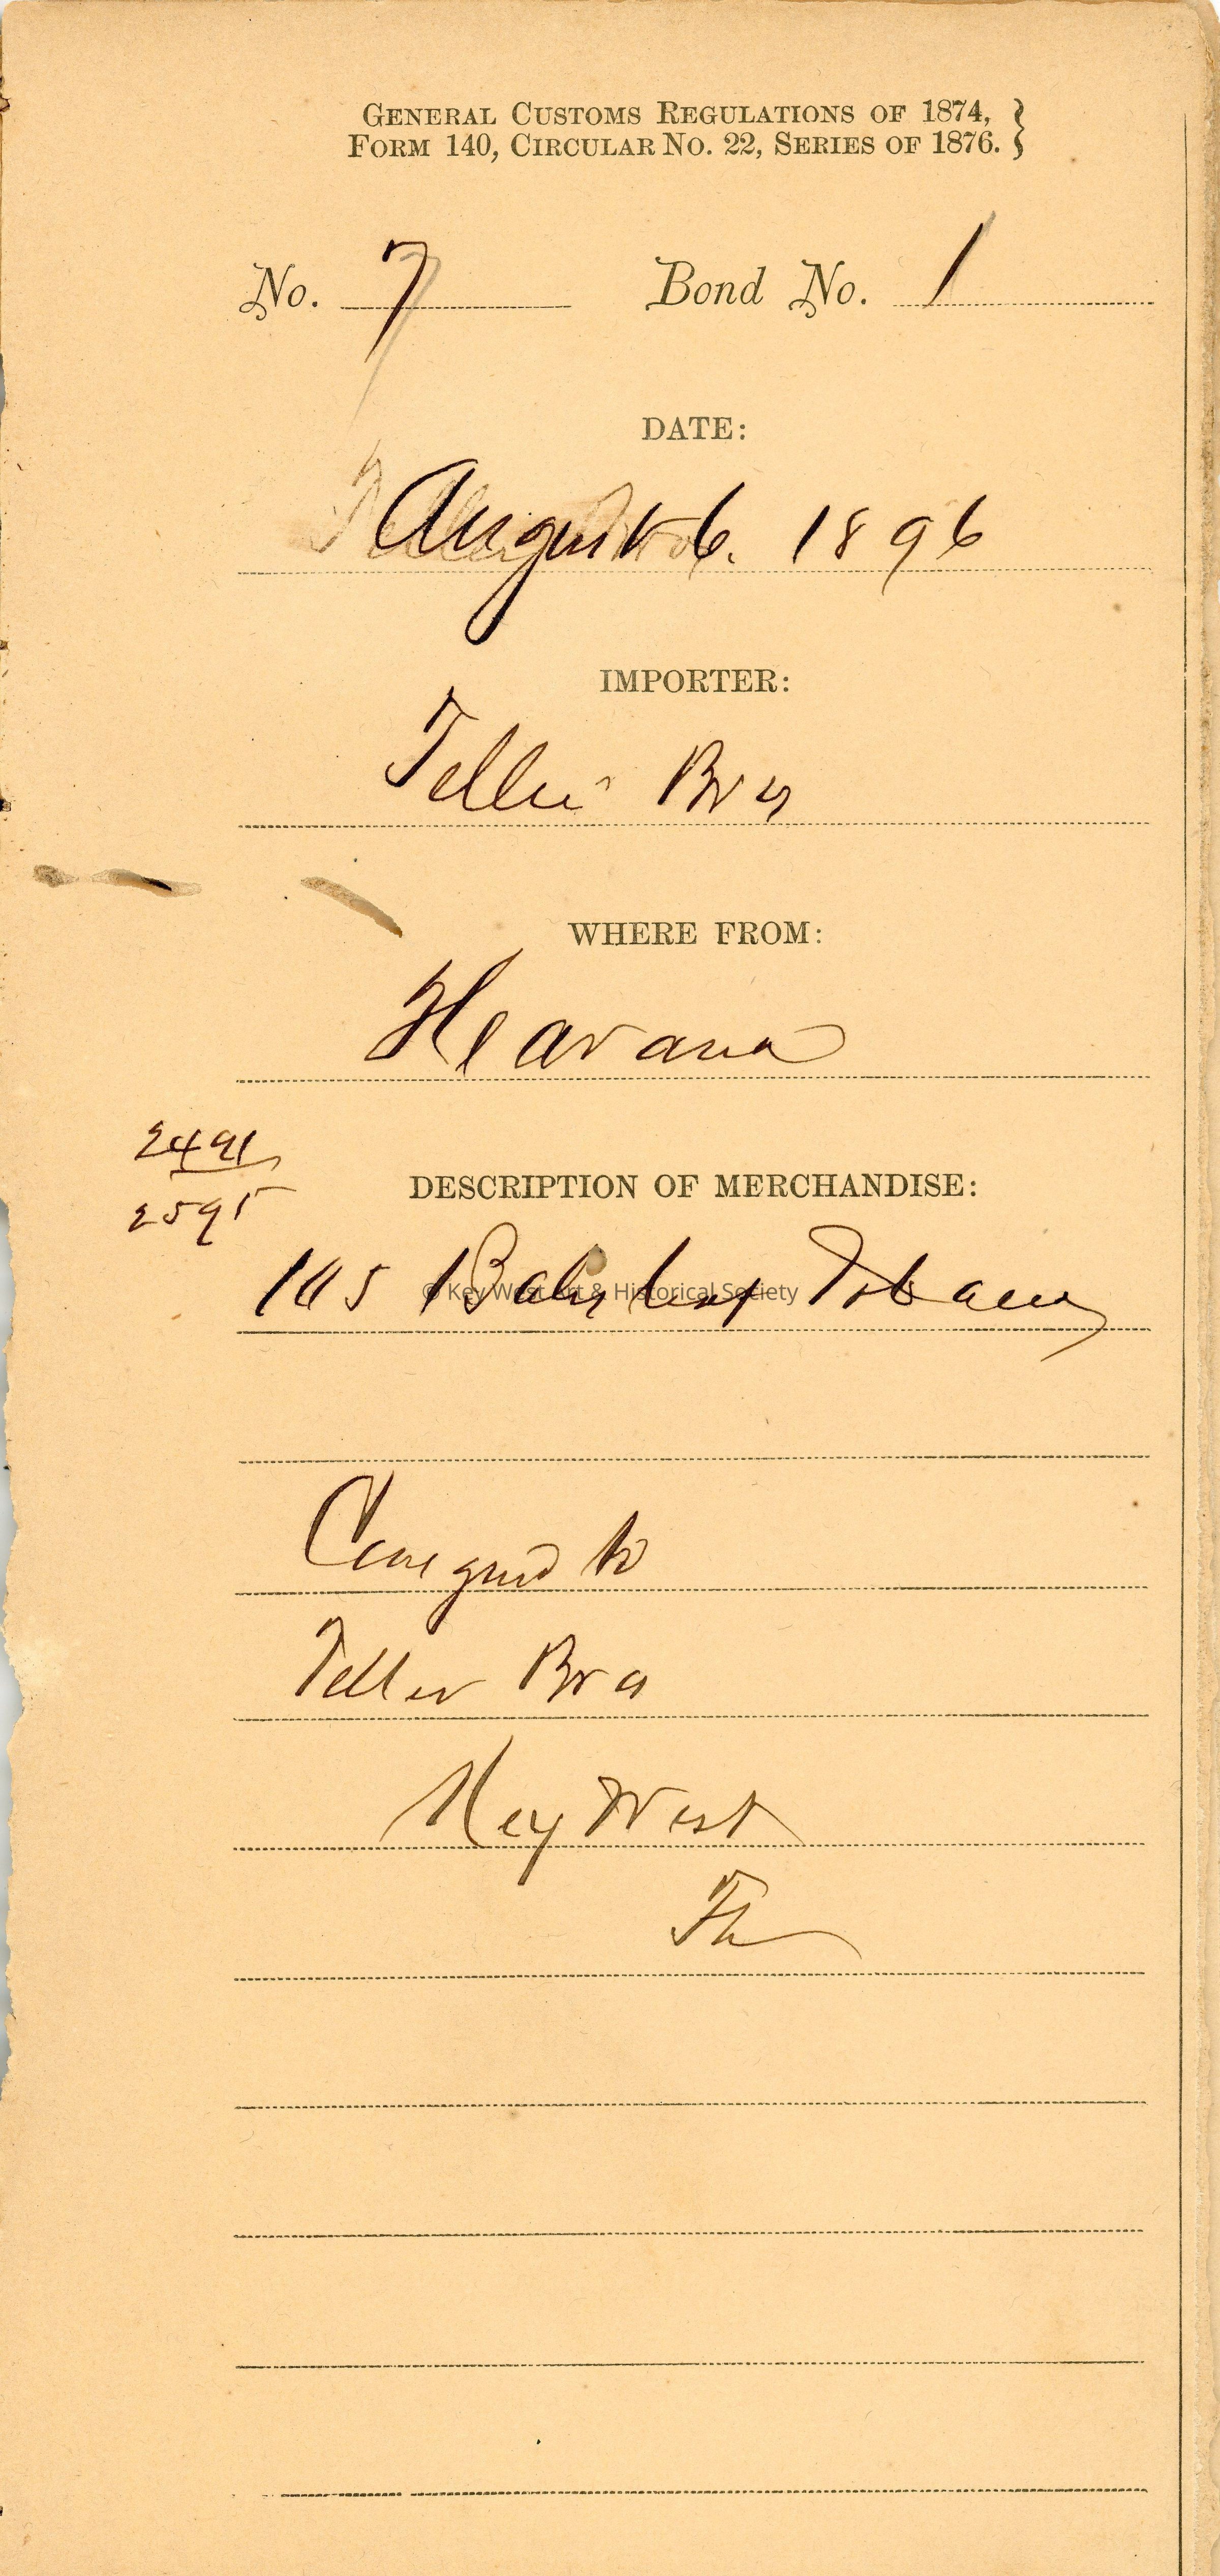 GENERAL CUSTOMS REGULATIONS OF 1874,
FORM 140, CIRCULAR NO. 22, SERIES OF 1876.
No. 7 Bond No. 1
DATE:
August 6. 1896
IMPORTER:
Teller Bros
WHERE FROM:
Havana
2491
2595
DESCRIPTION OF MERCHANDISE:
105 Bales leaf Tobacco
© Key West Art & Historical Society
Consigned to
Teller Bros
Key West
Fla